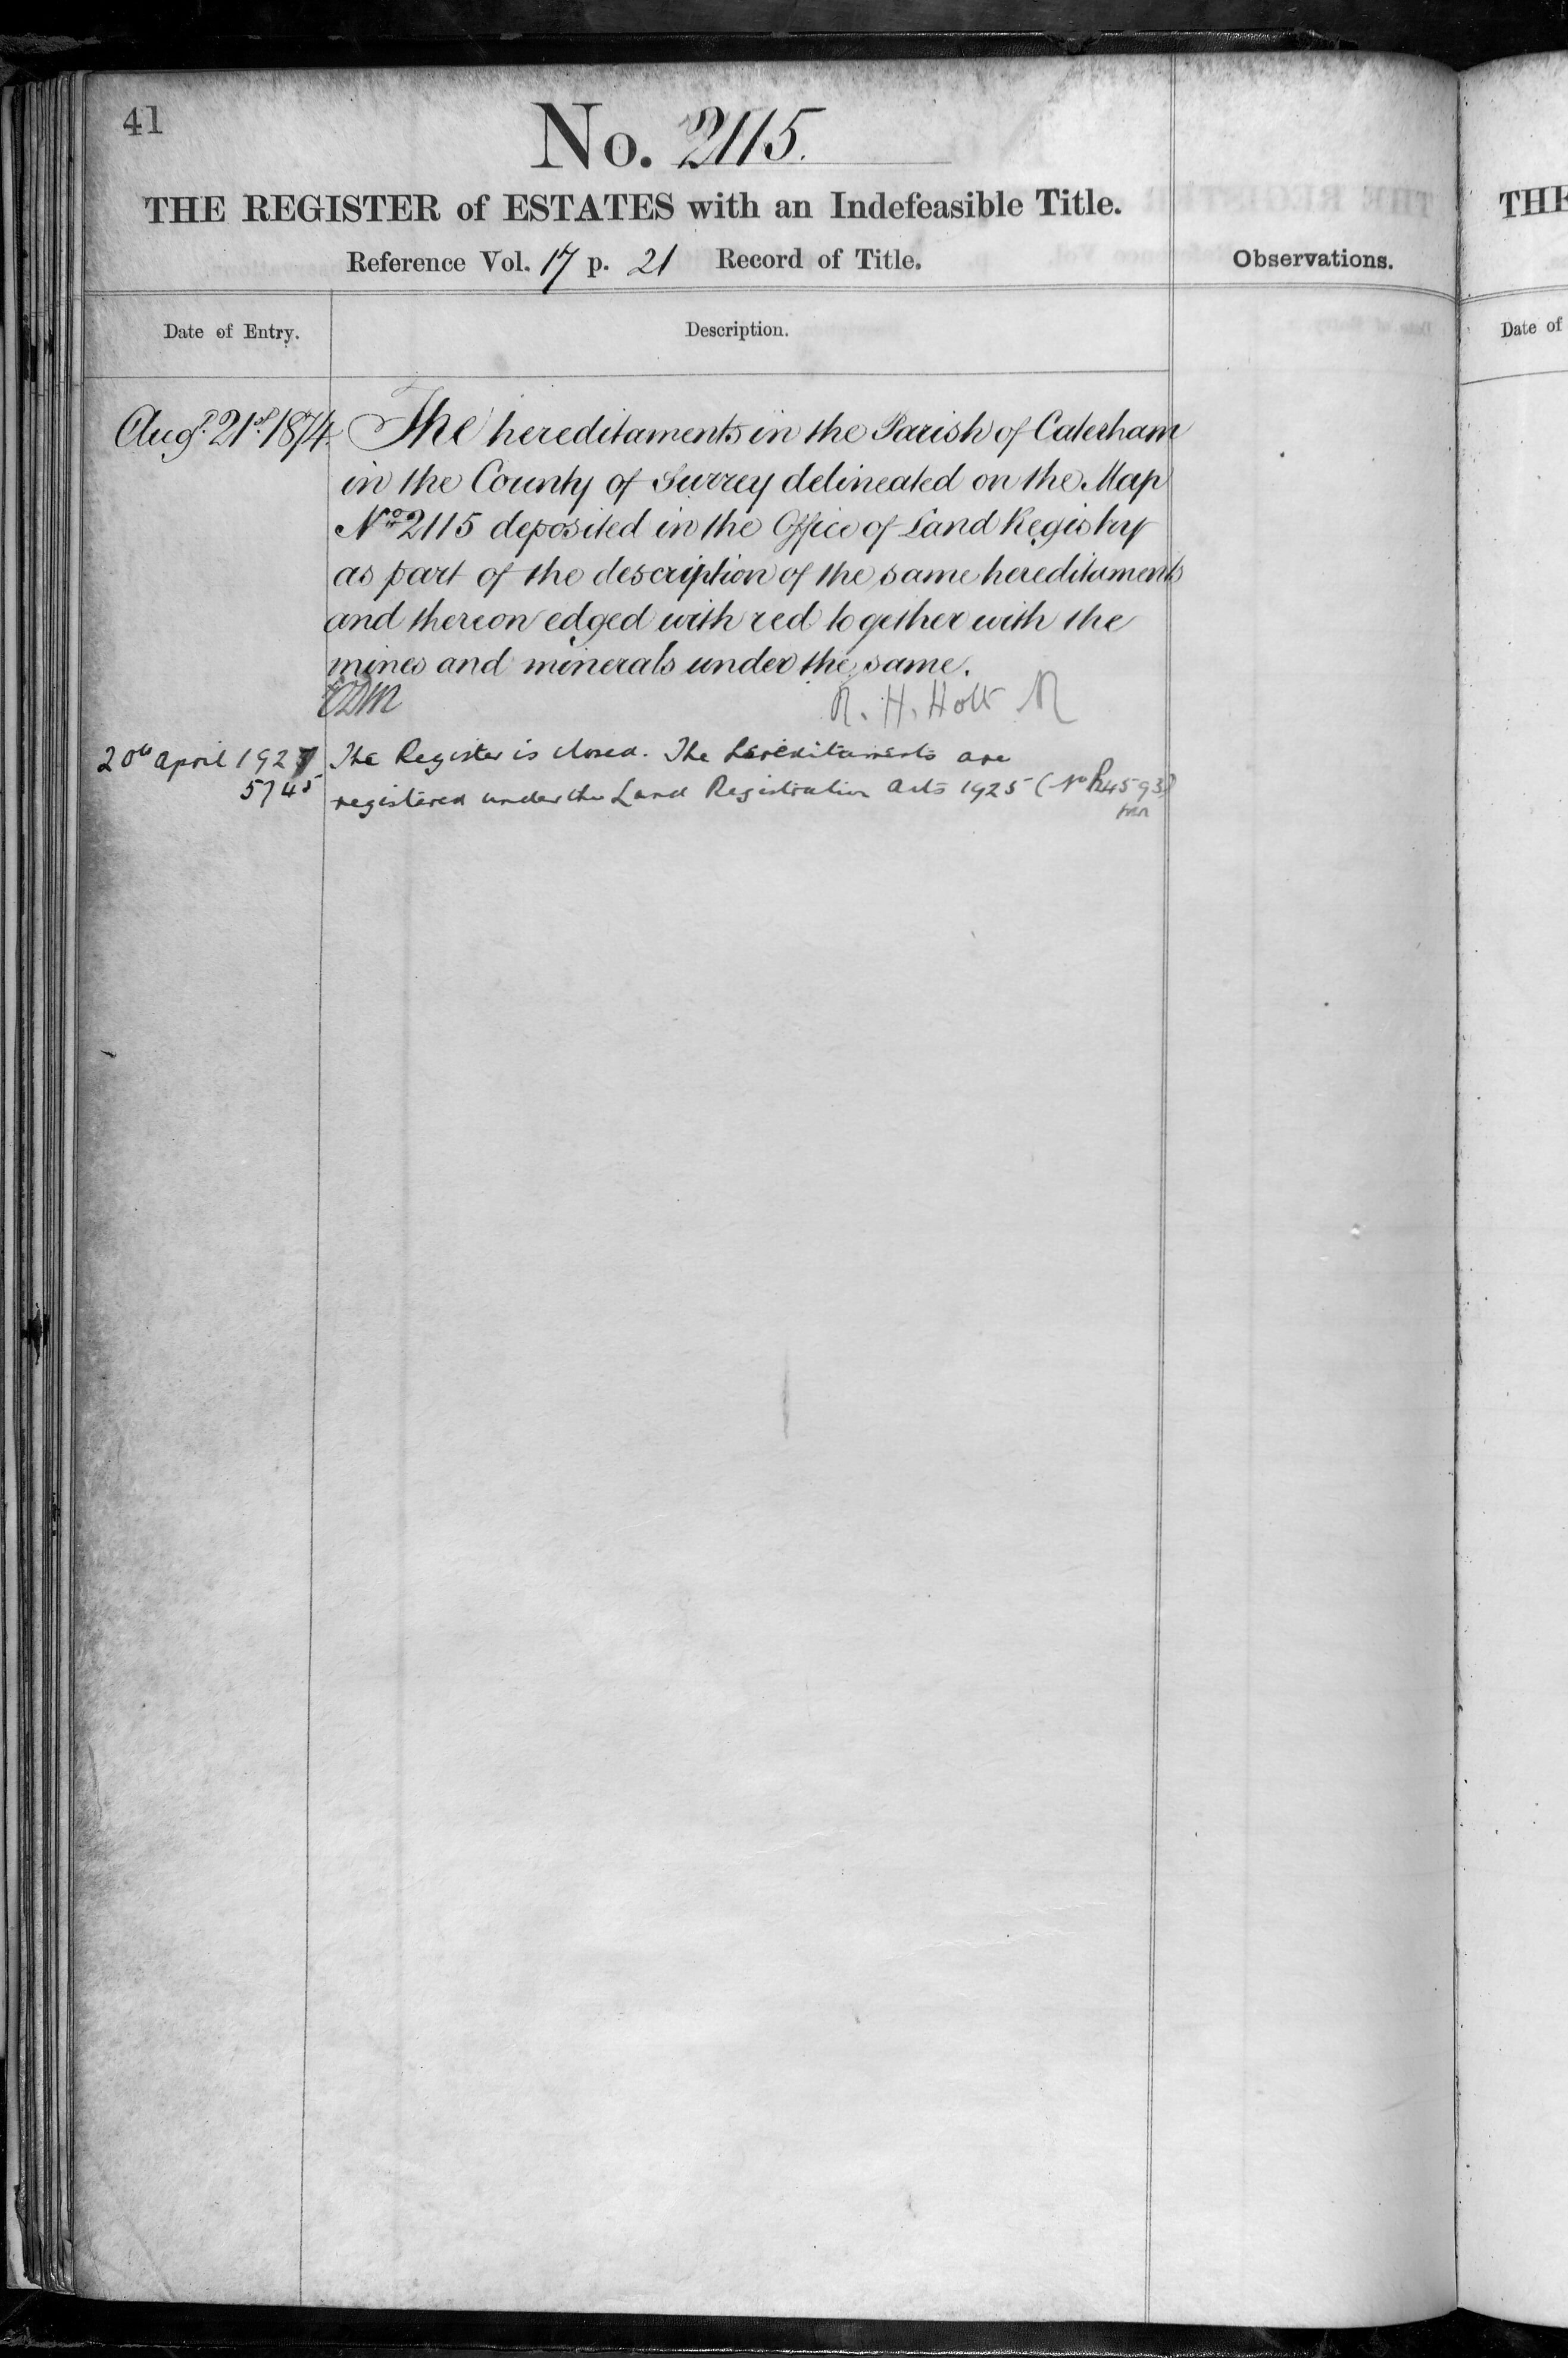 41
No. 2115.
THE REGISTER of ESTATES with an Indefeasible Title.
Reference Vol. 17 p. 21 Record of Title.
Observations.
Date of Entry.
Description.
Augt. 21st. 1874
The hereditaments in the Parish of Caterham
in the County of Surrey delineated on the Map
No 2115 deposited in the Office of Land Registry
as part of the description of the same hereditaments
and thereon edged with red together with the
mines and minerals under the same.
R. H. Holt R
20th April 1927
5745
The Register is closed. The hereditaments are
registered under the Land Registration Acts 1925 (No P24593)
THE
Date of